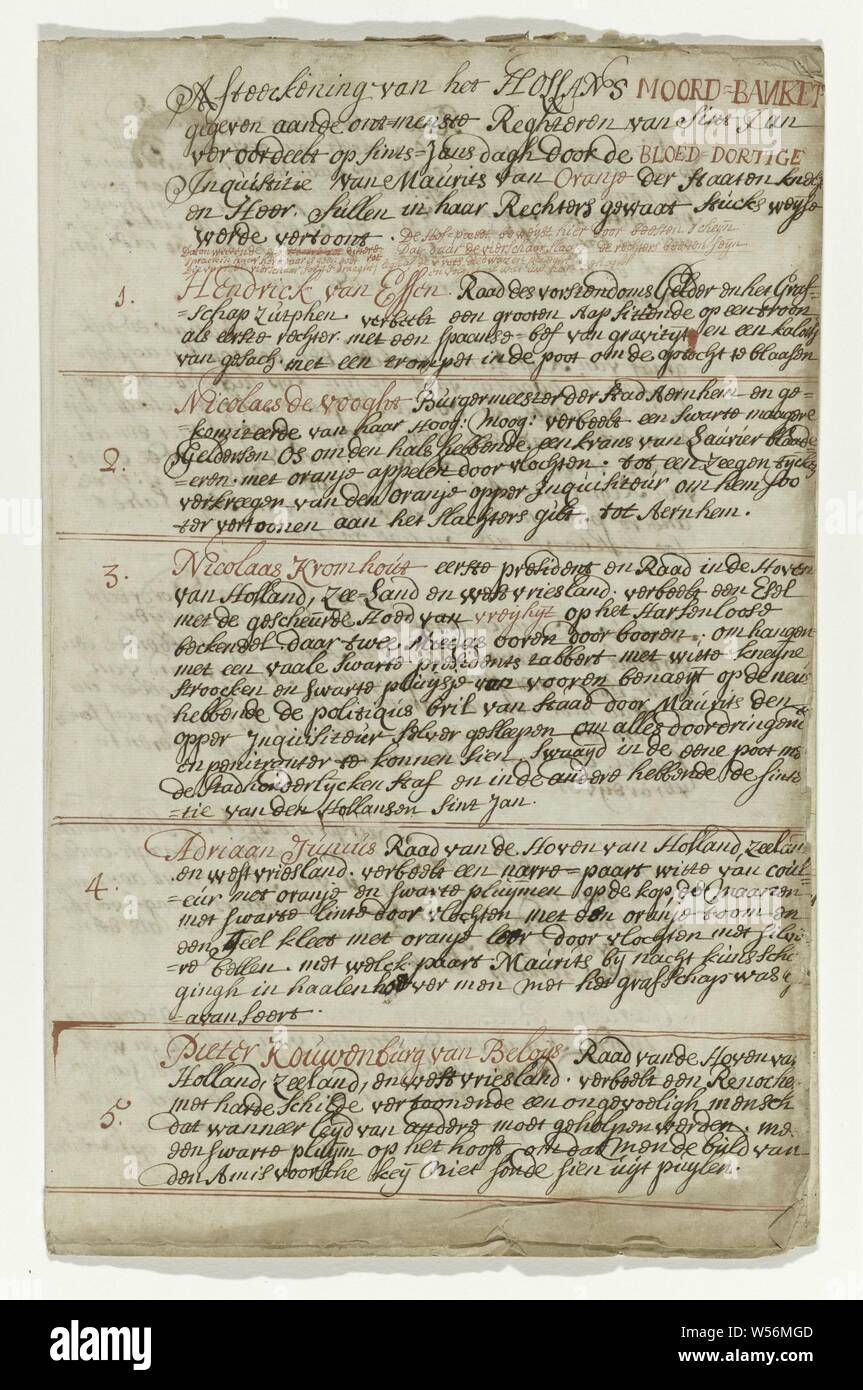 Afteeckening van het HOLLANS MOORD=BANKET
gegeven aande ont=menste Reghteren van Sint Jan
veroordeelt op sints=Jans dagh door de BLOED-DORTIGE
Inquisitie van Maurits van Oranje der Staaten knegt
en Heer. Sullen in haar Rechters gewaat stucks weyse
werde vertoont. De Hof-poëet de weyst hier door beesten scheyn
Dat daar de vierschaar de rechters beesten seyn
1. Hendrick van Essen. Raad des vorstendoms Gelder en het Graf-
=schap Zutphen. verbeelt een grooten Aap sittende op een troon
als eerste rechter met een spaense=bef van gravityt en een kalotj
van gesach. met een trompet in de poot om de optocht te blaasen
2. Nicolaes de Vooght Burgermeester der stad Aernhem en ge-
=komiteerde van haar Hoog: Moog: verbeelt een swarte maagere
Geldersen Os om den hals hebbende een krans van Laurier blaade-
=eren. met oranje appelen door vlochten. tot een zeegen tycken
verkreegen van den oranje opper Inquisiteur om hem soo
ter vertoonen aan het slachters gilt. tot Aernhem.
3. Nicolaas Kromhout eerste president en Raad in de Hoven
van Holland, Zee-Land en west vriesland. verbeelt een Esel
met de gescheurde Hoed van vreyhyt op het Harsenloose
beckeneel daar twee Meedas ooren door booren. om hangen
met een vaale swarte presidents tabbert met witte kneyne
stroocken en swarte pluysse van vooren benaeyt op de neus
hebbende de politiqus bril van staad door Maurits den
opper Inquisiteur selver gesleepen om alles doordringent
en penitranter te konnen sien, swaayd in de eene poot met
de stadhouderlycken staf en in de andere hebbende de sinte
=tie van den Hollansen Sint Jan.
4. Adriaan Junius Raad van de Hoven van Holland, zeelant
en west vriesland. verbeelt een narre=paart witte van coul-
=eur met oranje en swarte pluymen op de kop de maanen
met swarte linte door vlochten met een oranje toom en
een Teel kleet met oranje leer door vlochten met silve-
=re bellen. met welck paart Maurits bij nacht
gingh in haalen men met het grafschap was g-
=avanseert.
5. Pieter Kouwenburg van Beloijs Raad van de Hoven van
Holland, Zeeland, en west vriesland. verbeelt een Renoche
met harde schilde vertoonende een ongevoeligh mensch
dat wanneer leyd van andere moet geholpen werden. met
een swarte pluym op het hooft om dat men de buld van
den Amisvoorsche keij niet soude sien uyt puylen.
alamy
Image ID: W56MGD
www.alamy.com